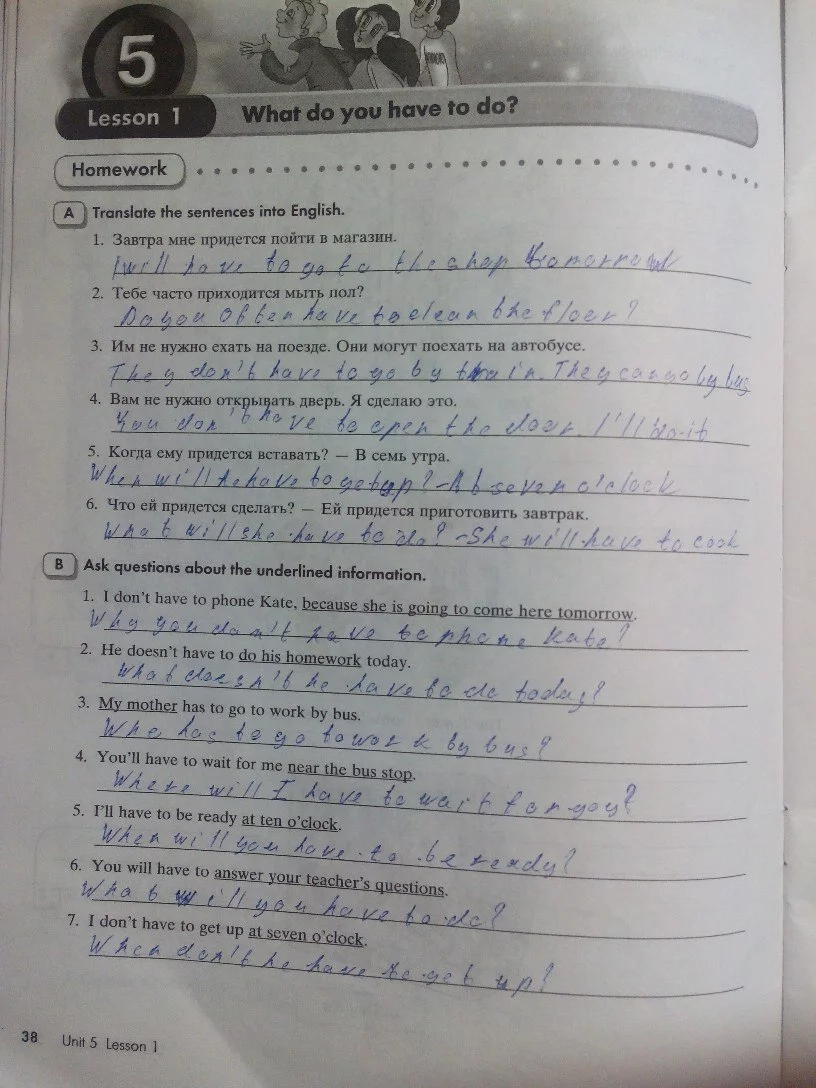 5
Lesson 1 What do you have to do?
Homework
A Translate the sentences into English.
1. Завтра мне придется пойти в магазин.
I will have to go to the shop tomorrow
2. Тебе часто приходится мыть пол?
Do you often have to clean the floor?
3. Им не нужно ехать на поезде. Они могут поехать на автобусе.
They don't have to go by train. They can go by bus
4. Вам не нужно открывать дверь. Я сделаю это.
You don't have to open the door. I'll do it
5. Когда ему придется вставать? — В семь утра.
When will he have to get up? - At seven o'clock
6. Что ей придется сделать? — Ей придется приготовить завтрак.
What will she have to do? - She will have to cook
B Ask questions about the underlined information.
1. I don't have to phone Kate, because she is going to come here tomorrow.
Why you don't have to phone Kate?
2. He doesn't have to do his homework today.
What doesn't he have to do today?
3. My mother has to go to work by bus.
Who has to go to work by bus?
4. You'll have to wait for me near the bus stop.
Where will I have to wait for you?
5. I'll have to be ready at ten o'clock.
When will you have to be ready?
6. You will have to answer your teacher's questions.
What will you have to do?
7. I don't have to get up at seven o'clock.
When don't he have to get up?
38 Unit 5 Lesson 1